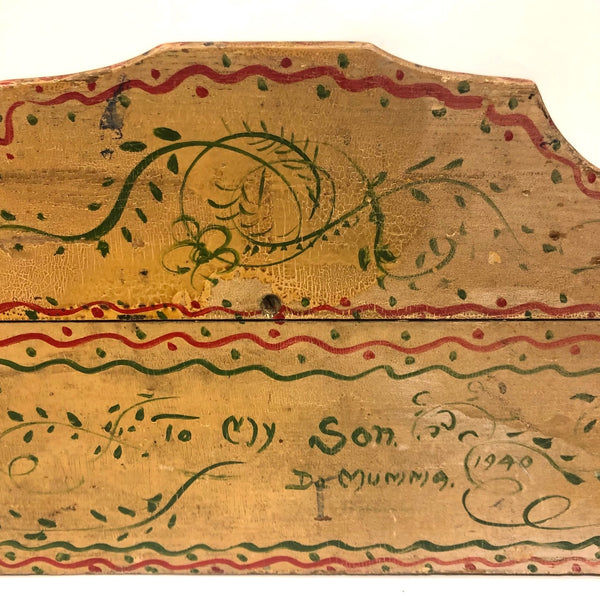 To My. Son.
Da Mumma. 1940